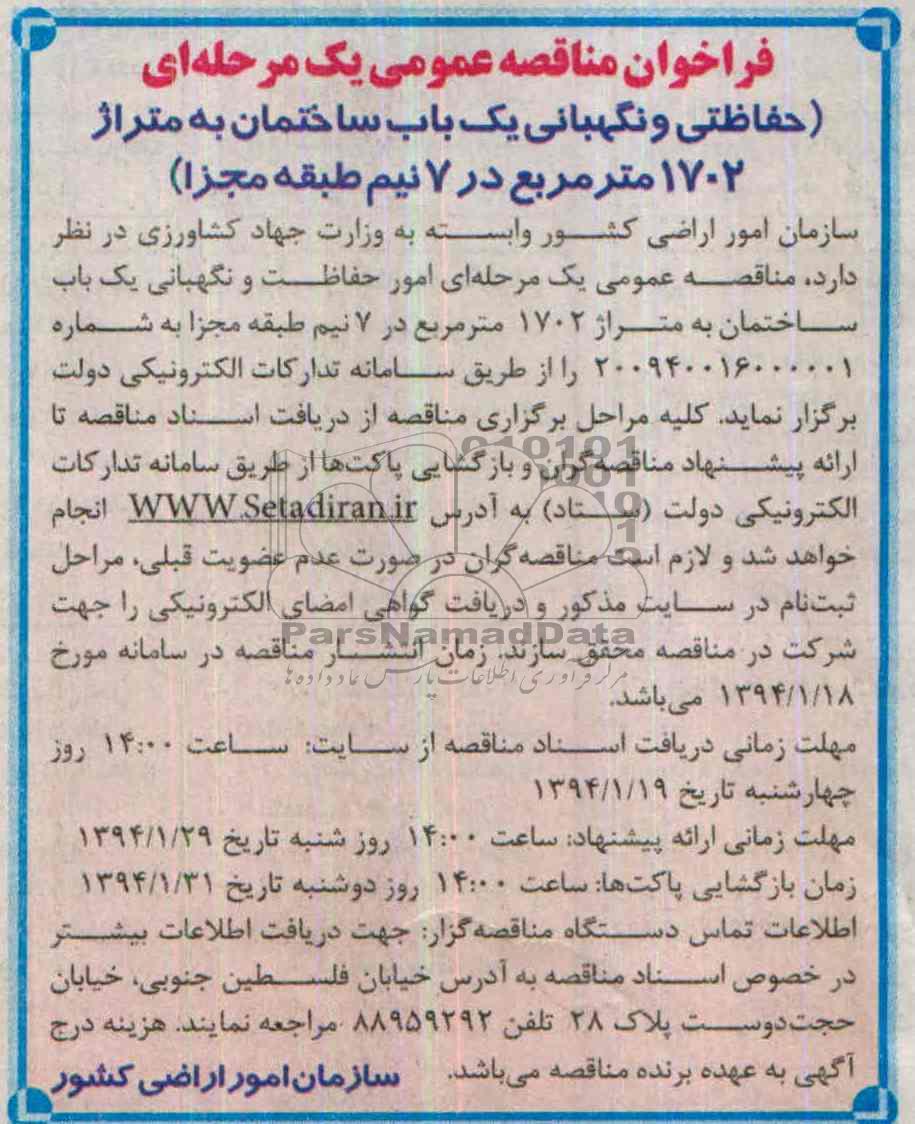 فراخوان مناقصه عمومی یک مرحله‌ای
(حفاظتی و نگهبانی یک باب ساختمان به متراژ
۱۷۰۲ متر مربع در ۷ نیم طبقه مجزا)
سازمان امور اراضی کشور وابسته به وزارت جهاد کشاورزی در نظر
دارد، مناقصه عمومی یک مرحله‌ای امور حفاظت و نگهبانی یک باب
ساختمان به متراژ ۱۷۰۲ مترمربع در ۷ نیم طبقه مجزا به شماره
۲۰۰۹۴۰۰۱۶۰۰۰۰۰۱ را از طریق سامانه تدارکات الکترونیکی دولت
برگزار نماید. کلیه مراحل برگزاری مناقصه از دریافت اسناد مناقصه تا
ارائه پیشنهاد مناقصه‌گران و بازگشایی پاکت‌ها از طریق سامانه تدارکات
الکترونیکی دولت (ستاد) به آدرس WWW.Setadiran.ir انجام
خواهد شد و لازم است مناقصه‌گران در صورت عدم عضویت قبلی، مراحل
ثبت‌نام در سایت مذکور و دریافت گواهی امضای الکترونیکی را جهت
شرکت در مناقصه محقق سازند. زمان انتشار مناقصه در سامانه مورخ
۱۳۹۴/۱/۱۸ می‌باشد.
مهلت زمانی دریافت اسناد مناقصه از سایت: ساعت ۱۴:۰۰ روز
چهارشنبه تاریخ ۱۳۹۴/۱/۱۹
مهلت زمانی ارائه پیشنهاد: ساعت ۱۴:۰۰ روز شنبه تاریخ ۱۳۹۴/۱/۲۹
زمان بازگشایی پاکت‌ها: ساعت ۱۴:۰۰ روز دوشنبه تاریخ ۱۳۹۴/۱/۳۱
اطلاعات تماس دستگاه مناقصه‌گزار: جهت دریافت اطلاعات بیشتر
در خصوص اسناد مناقصه به آدرس خیابان فلسطین جنوبی، خیابان
حجت‌دوست پلاک ۲۸ تلفن ۸۸۹۵۹۲۹۲ مراجعه نمایند. هزینه درج
آگهی به عهده برنده مناقصه می‌باشد.
سازمان امور اراضی کشور
ParsNamadData
مرکز فرآوری اطلاعات پارس نماد داده‌ها